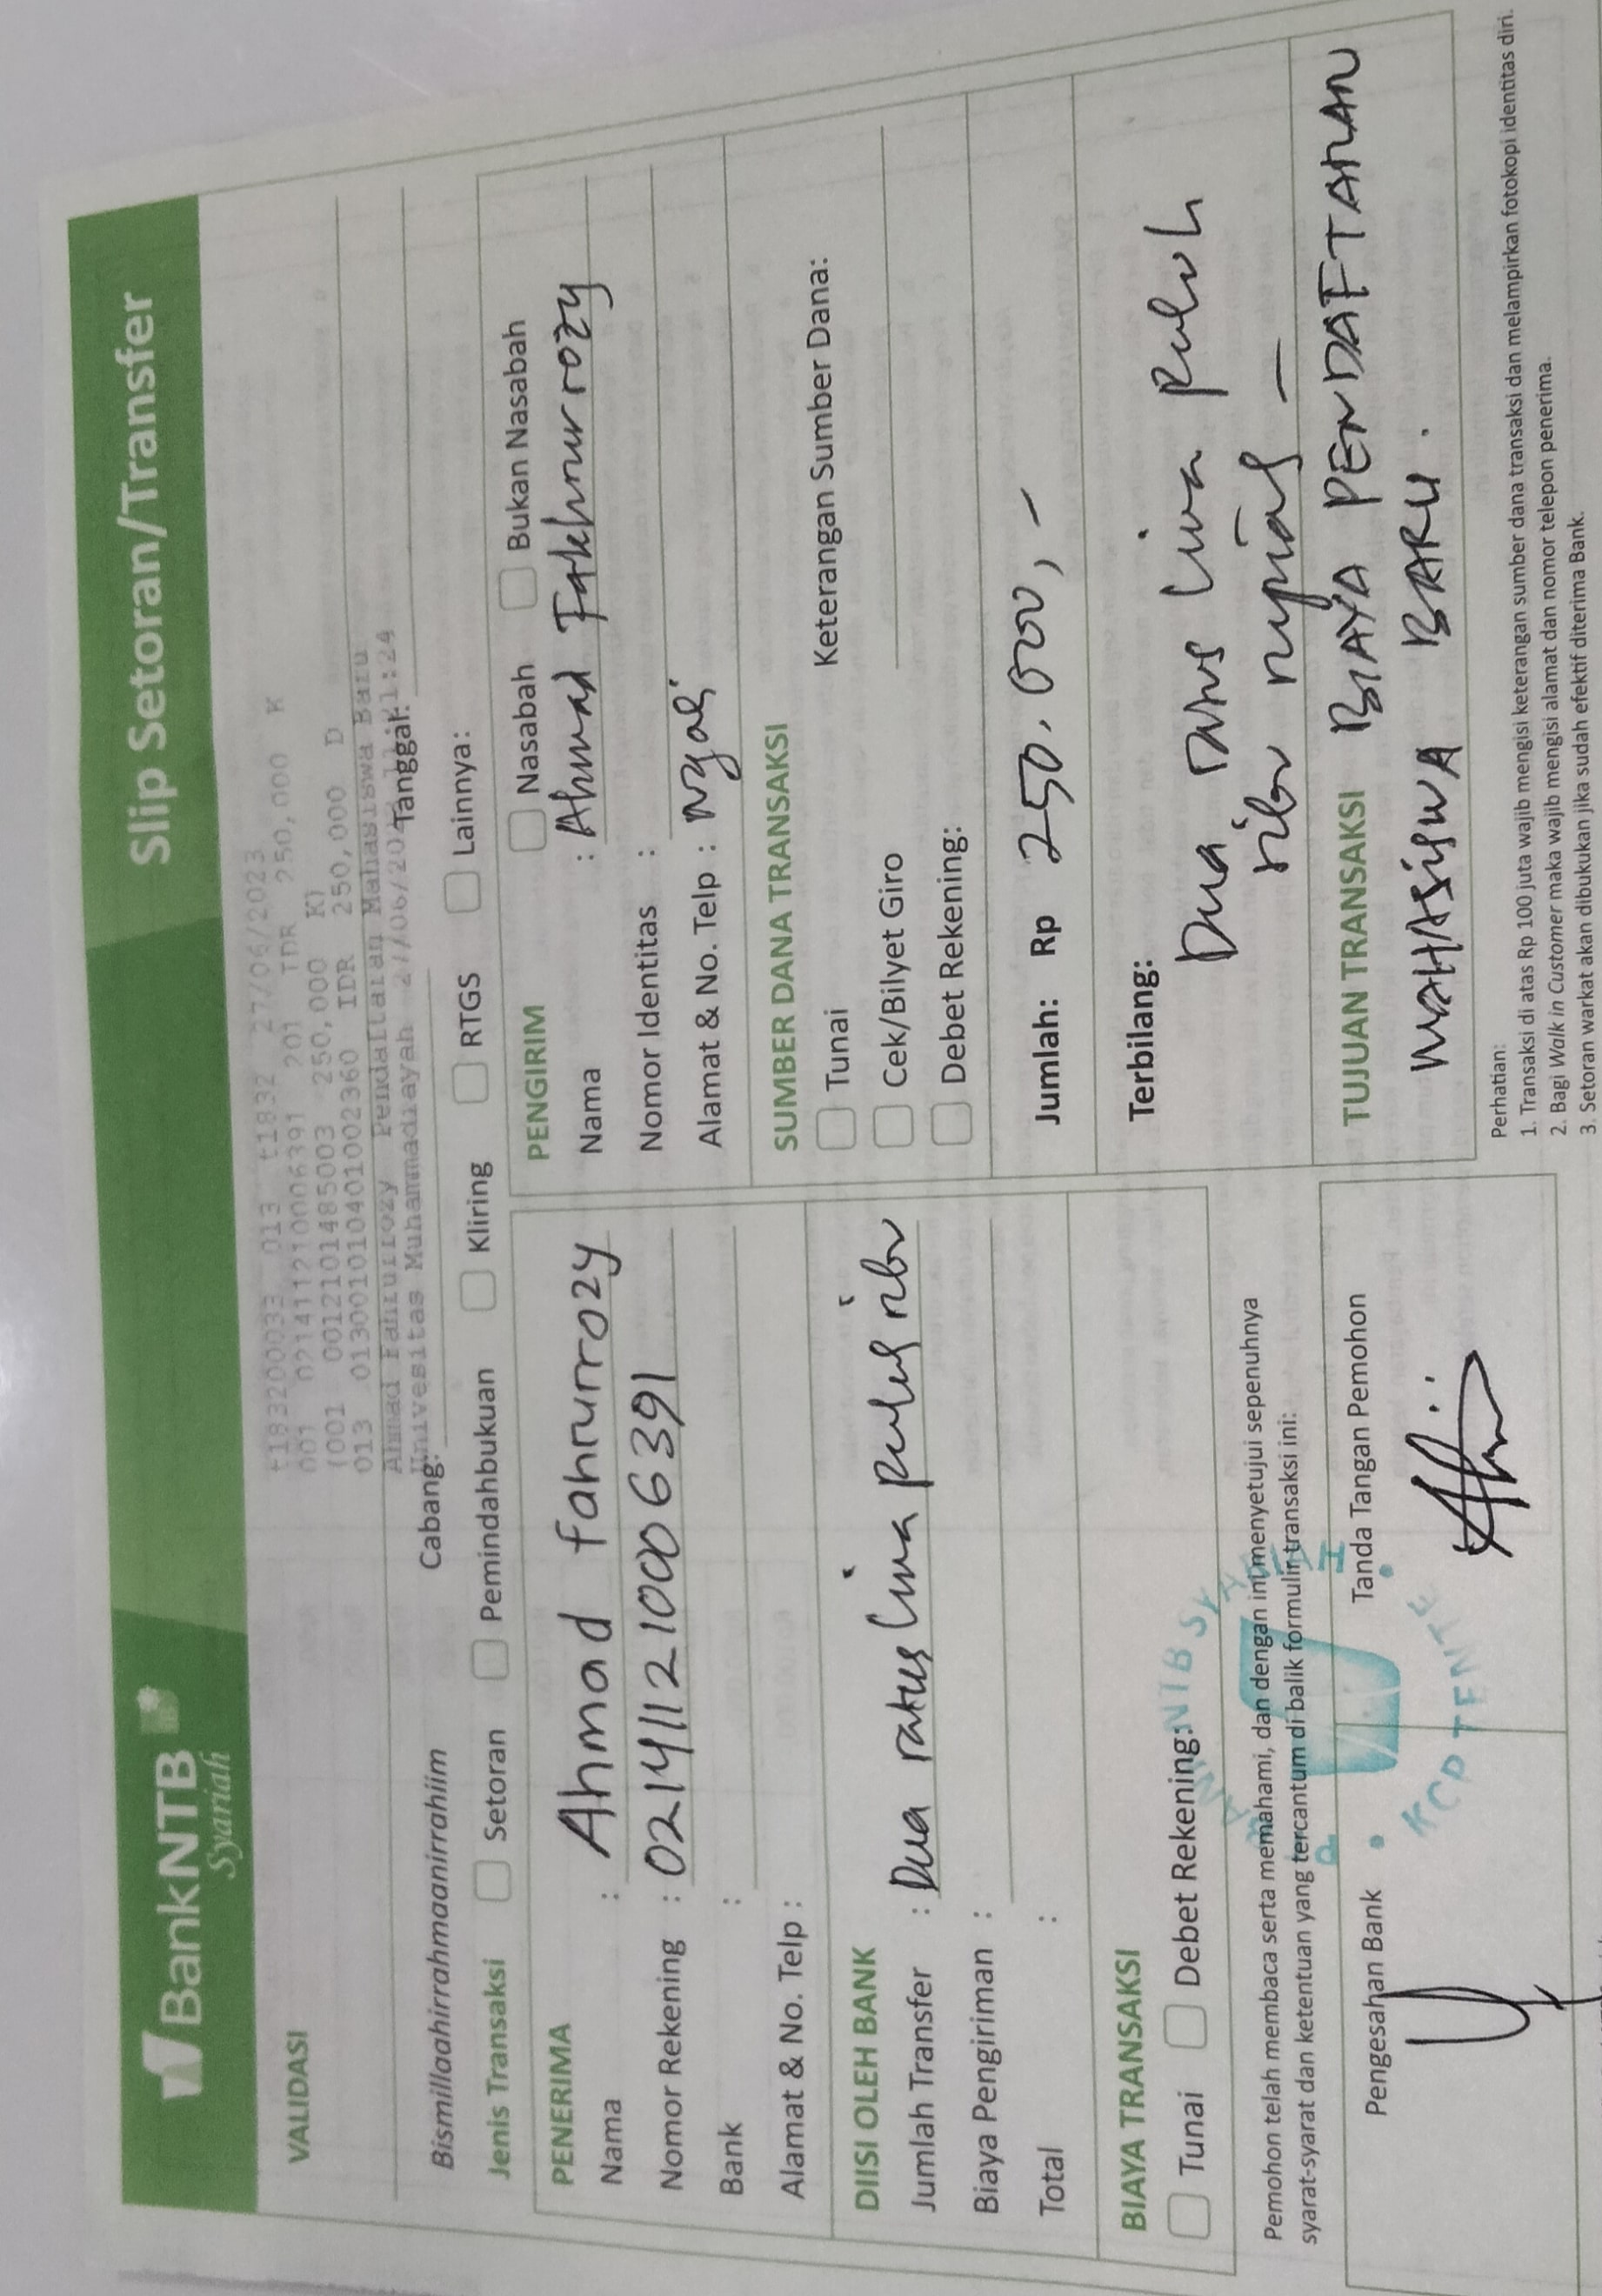 BankNTB
Syariah
Slip Setoran/Transfer
VALIDASI
t18320003 013 t1832 27/06/2023
001 021411210006391 201 IDR 250,000 K
(001 0012101485003 250,000 K)
013 0130010104010002360 IDR 250,000 D
Ahmad Fahrurrozy Pendaftaran Mahasiswa Baru
Univesitas Muhammadiayah 27/06/202 11:24
Bismillaahirrahmaanirrahiim
Cabang:
Tanggal:
Jenis Transaksi
Setoran
Pemindahbukuan
Kliring
RTGS
Lainnya:
PENERIMA
Nama : Ahmad fahrurrozy
Nomor Rekening : 021411210006391
Bank :
Alamat & No. Telp :
DIISI OLEH BANK
Jumlah Transfer : Dua ratus lima puluh ribu
Biaya Pengiriman :
Total :
BIAYA TRANSAKSI
Tunai
Debet Rekening:
Pemohon telah membaca serta memahami, dan dengan ini menyetujui sepenuhnya
syarat-syarat dan ketentuan yang tercantum di balik formulir transaksi ini:
Pengesahan Bank
Tanda Tangan Pemohon
NTB SYA
KCP TENTE
PENGIRIM
Nasabah
Bukan Nasabah
Nama : Ahmad Fakhrurrozy
Nomor Identitas :
Alamat & No. Telp : Ngali
SUMBER DANA TRANSAKSI
Tunai
Keterangan Sumber Dana:
Cek/Bilyet Giro
Debet Rekening:
Jumlah: Rp 250.000,-
Terbilang:
Dua ratus lima puluh
ribu rupiah -
TUJUAN TRANSAKSI BIAYA PENDAFTARAN
MAHASISWA BARU.
Perhatian:
1. Transaksi di atas Rp 100 juta wajib mengisi keterangan sumber dana transaksi dan melampirkan fotokopi identitas diri.
2. Bagi Walk in Customer maka wajib mengisi alamat dan nomor telepon penerima.
3. Setoran warkat akan dibukukan jika sudah efektif diterima Bank.